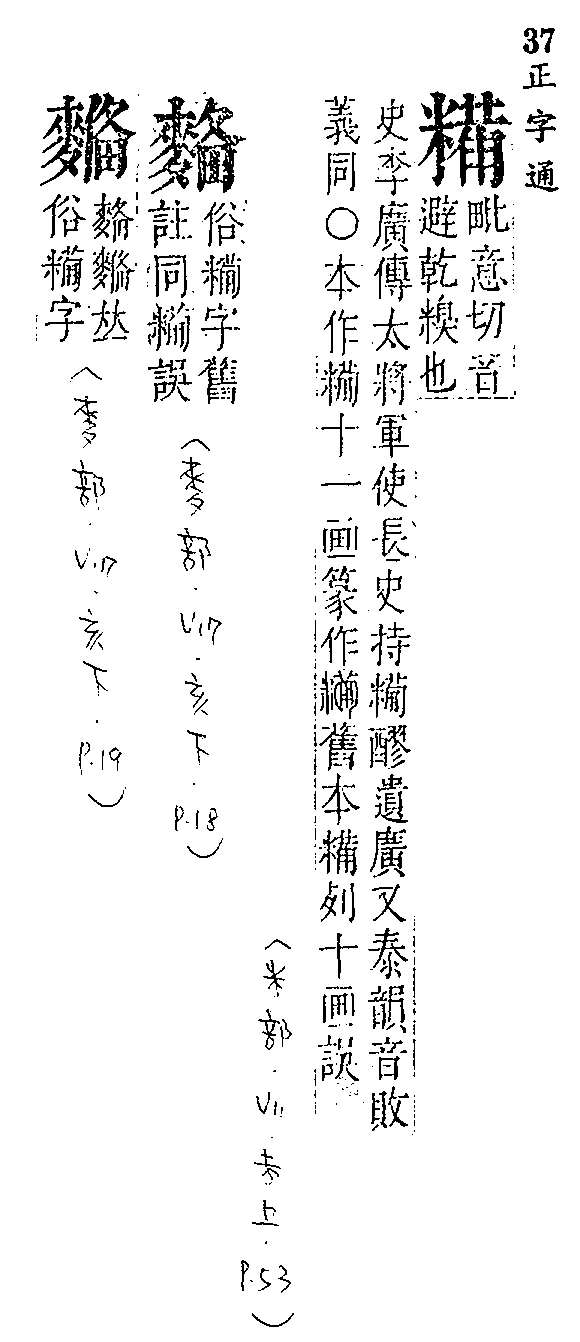 37
正字通
糒
毗意切音
避乾糗也
史李廣傳太將軍使長史持糒醪遺廣又泰韻音敗
義同○本作糒十一画篆作糒舊本糒列十画誤
(米部.V11.未上.P.53)
俗糒字舊
註同糒誤
(麥部.V.17.亥下.P.18)
俗糒字
(麥部.V.17.亥下.P.19)